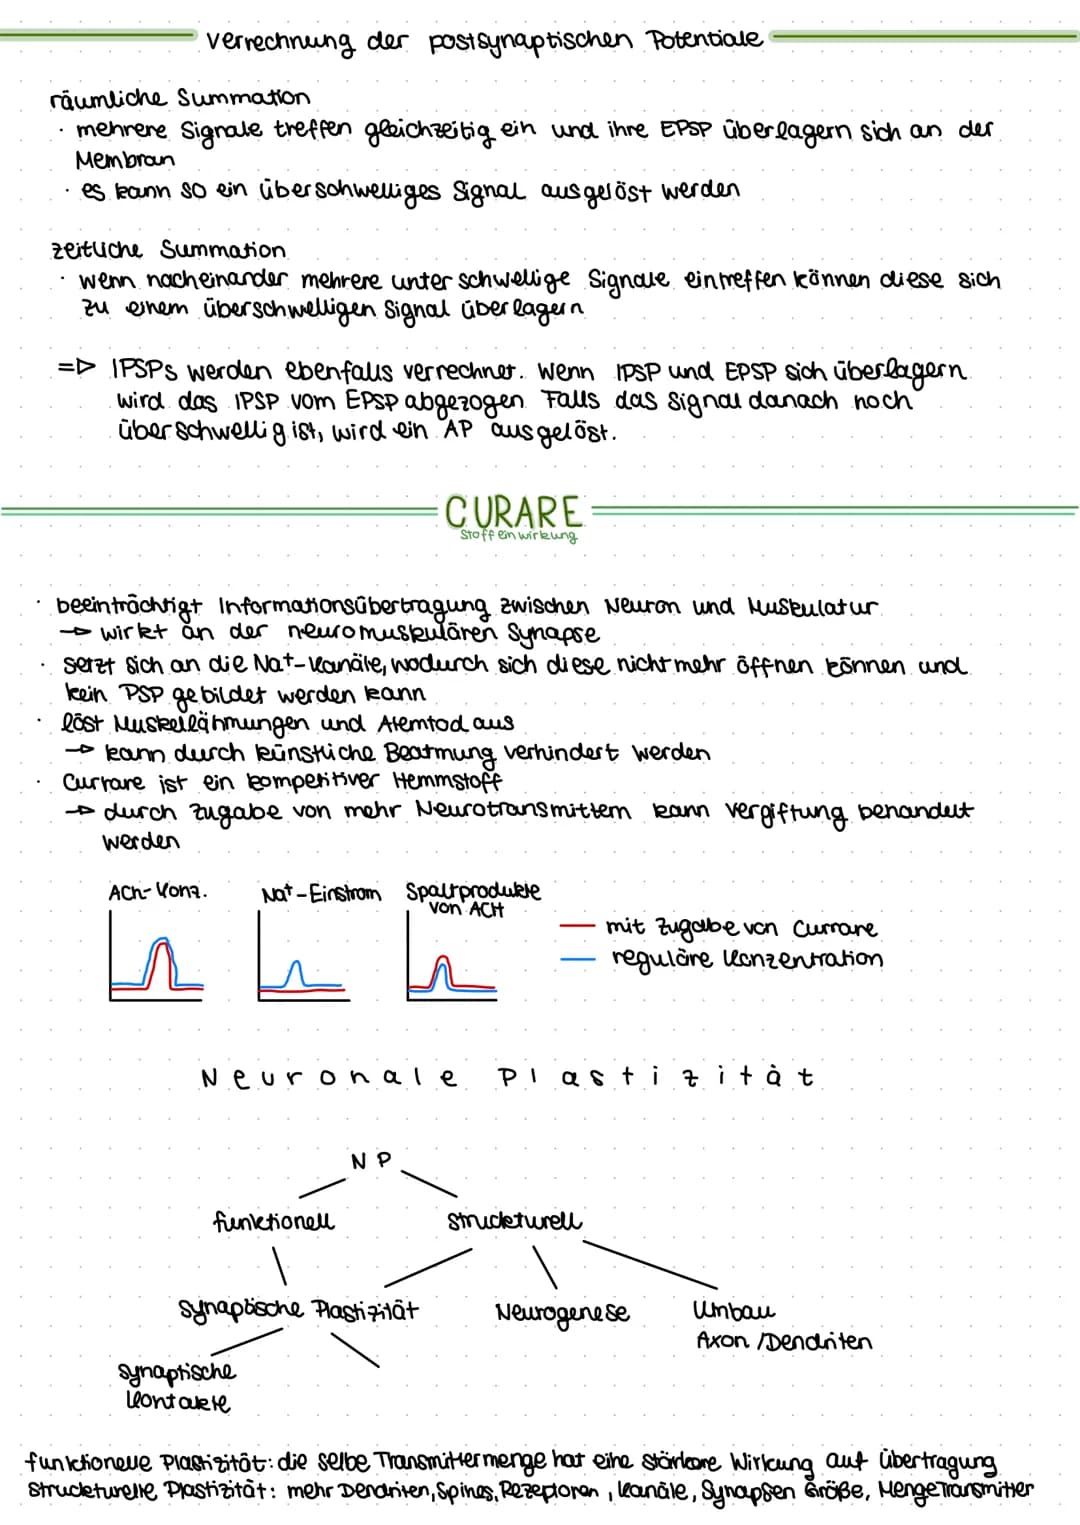 Verrechnung der postsynaptischen Potentiale
räumliche Summation
· mehrere Signale treffen gleichzeitig ein und ihre EPSP überlagern sich an der
Membran
· es kann so ein überschwelliges Signal ausgelöst werden
zeitliche Summation
· wenn nacheinander mehrere unterschwellige Signale eintreffen können diese sich
zu einem überschwelligen Signal überlagern
=> IPSPs werden ebenfalls verrechnet. Wenn IPSP und EPSP sich überlagern
wird das IPSP vom EPSP abgezogen Falls das Signal danach noch
überschwellig ist, wird ein AP ausgelöst.
CURARE
Stoffeinwirkung
· beeinträchtigt Informationsübertragung zwischen Neuron und Muskulatur
→ wirkt an der neuromuskulären Synapse
· setzt sich an die Na+-Kanäle, wodurch sich diese nicht mehr öffnen können und
kein PSP gebildet werden kann
· löst Muskellähmungen und Atemtod aus
→ kann durch künstliche Beatmung verhindert werden
· Currare ist ein kompetitiver Hemmstoff
→ durch Zugabe von mehr Neurotransmittern kann Vergiftung behandelt
werden
ACh-Konz. Na+-Einstrom Spaltprodukte
von ACH
mit Zugabe von Currare
reguläre Konzentration
Neuronale Plastizität
NP
funktionell strukturell
synaptische Plastizität Neurogenese Umbau
Axon/Dendriten
synaptische
Kontakte
funktionelle Plastizität: die selbe Transmittermenge hat eine stärkere Wirkung auf Übertragung
Strukturelle Plastizität: mehr Dendriten, Spines, Rezeptoren, Kanäle, Synapsen Größe, Menge Transmitter